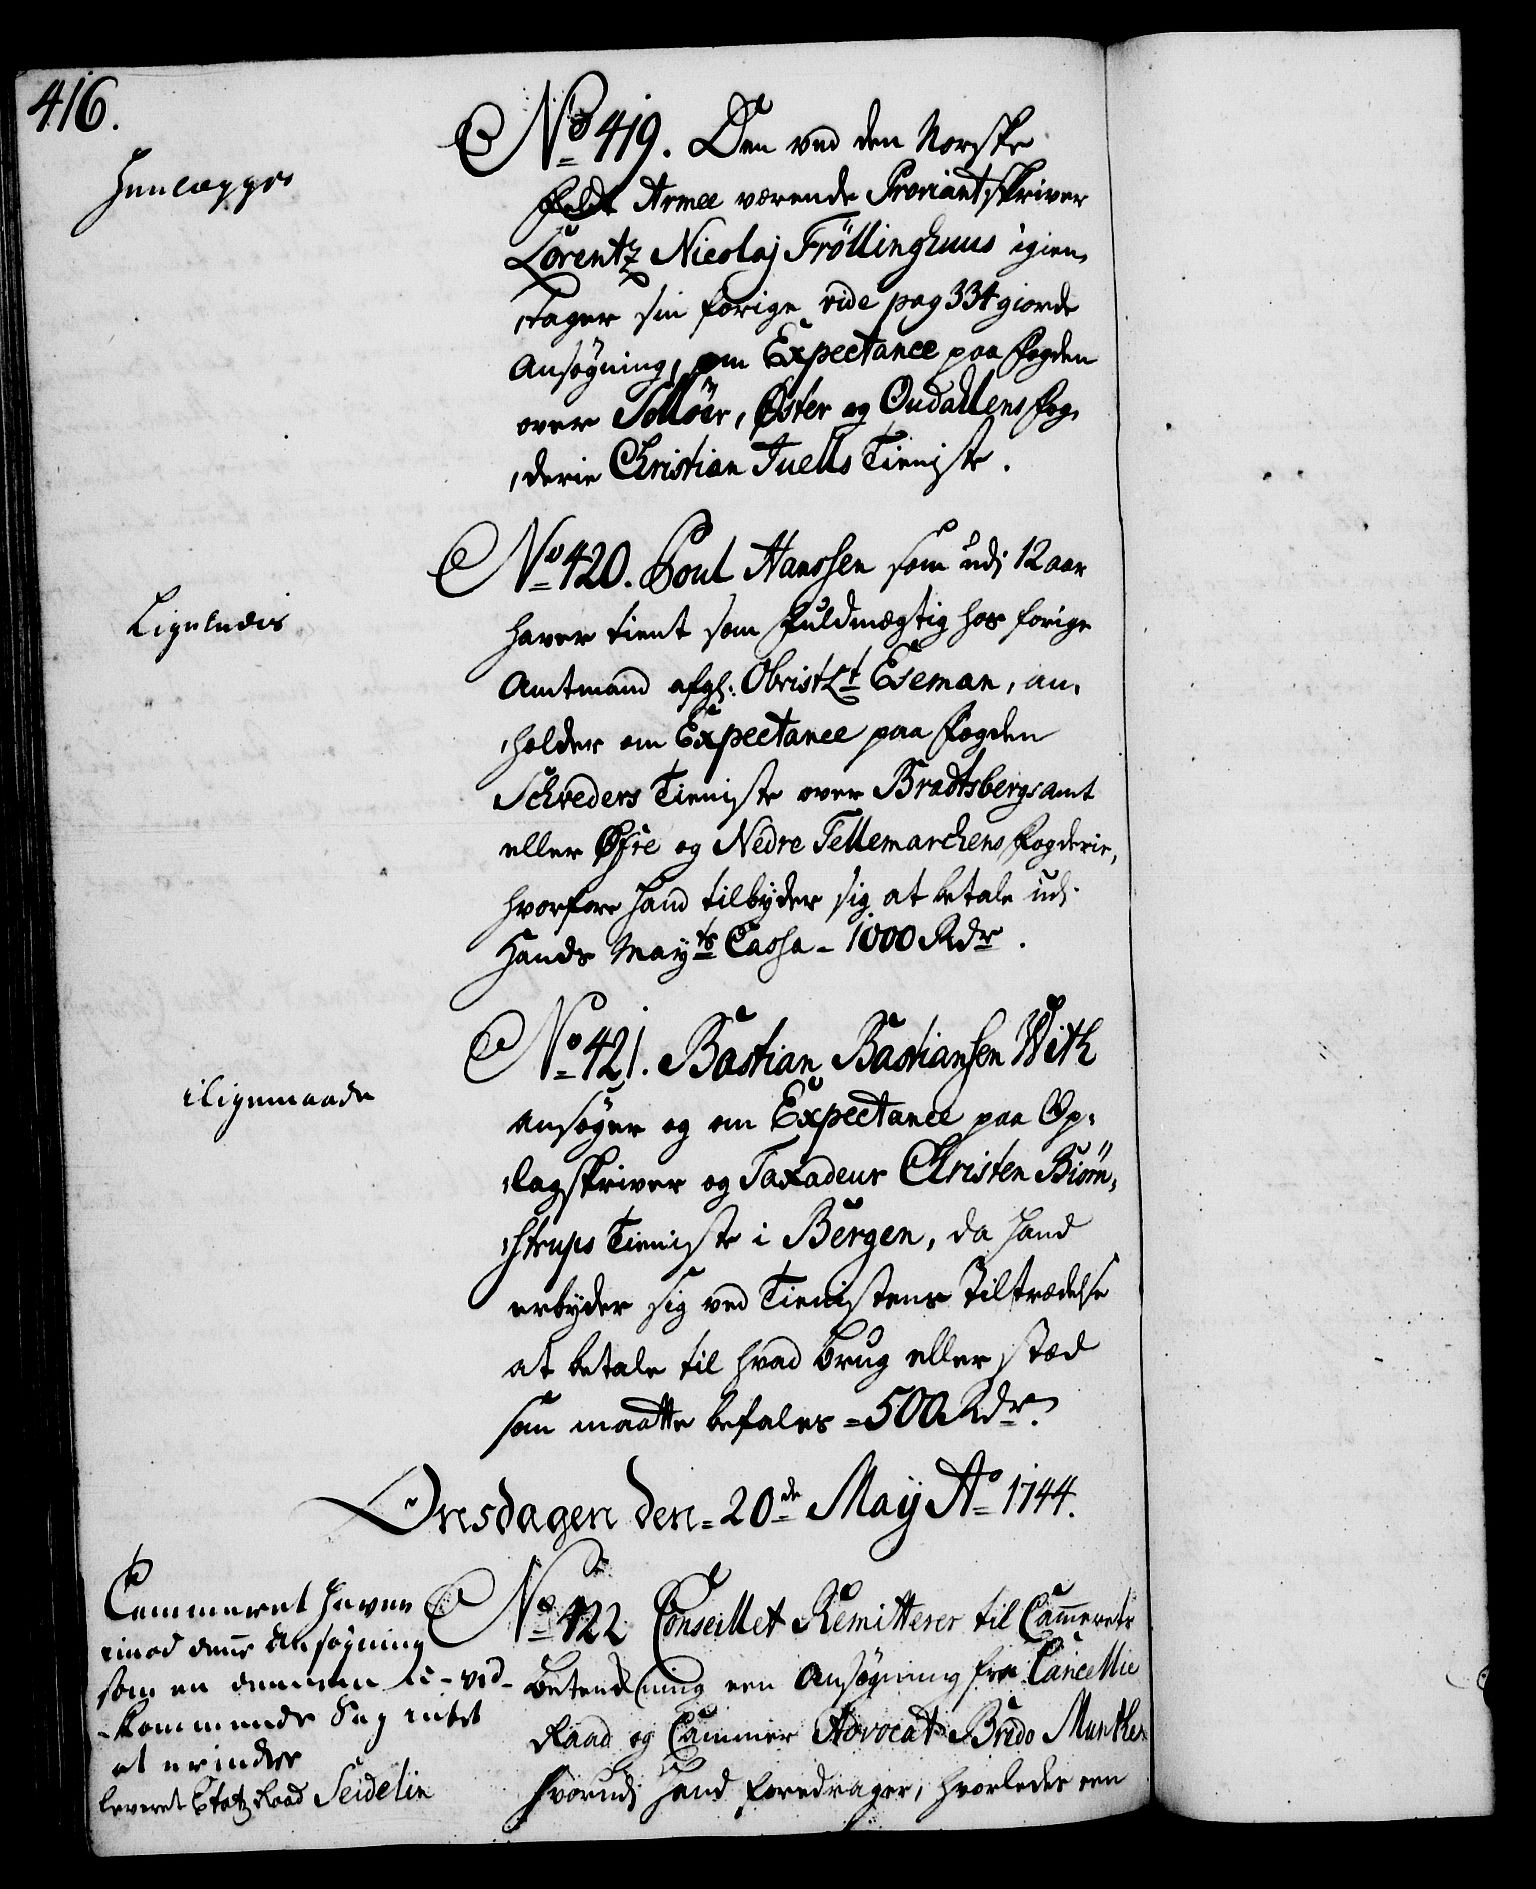 416.
Henlægges
No 419. Den ved den Norske
Feldt Armee værende Proviantskriver
Lorentz Nicolaj Fröllinghuus igien,
,tager sin forige vide pag 334 giorde
Ansøgning, om Expectance paa Fogden
over Solløer, Øster og Oudallens Fog,
,derie Christian Juells Tieniste.
No 420. Poul Hanssen som udi 12 aar
Ligeledis
haver tient som Fuldmægtig hos forige
Amtmand afgl: ObristLt Eseman, an,
,holder om Expectance paa Fogden
Schreders Tieniste over Bradtsbergs amt
eller Øfre og Nedre Tellemarchens Fogderie,
hvorfore hand tilbyder sig at betale udi
Hands Mayts Cassa - 1000 Rdr.
No 421. Bastian Bastiansen With
iligemaade
ansøger og om Expectance paa Op,
,lagskriver og Taxadeur Christen Biørn,
,strups Tieniste i Bergen, da hand
erbyder sig ved Tienistens Tiltrædelse
at betale til hvad brug eller stæd
som maatte befales = 500 Rdr.
Onsdagen den = 20de Maij Ao 1744.
Cammeret haver
imod denne Ansøgning
som en dennem u-ved-
-kommende Sag intet
at erindre
leveret Etatz Raad Seidelin
No 422 Conseillet Remitterer til Cammerets
Betænkning een Ansøgning fra Cancellie
Raad og Cammer Advocat Bredo Munthe
hvorudi hand foredrager, hvorledes een